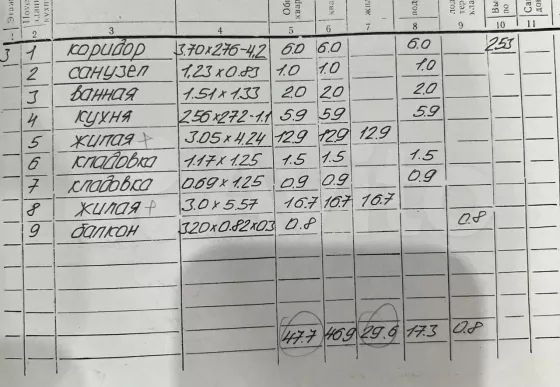 2 3 4 5 6 7 8 9 10 11
3 1 коридор 3.70×2.76-4.2 6.0 6.0 6.0 253
2 санузел 1.23×0.83 1.0 1.0 1.0
3 ванная 1.51×1.33 2.0 2.0 2.0
4 кухня 2.56×2.72-1.1 5.9 5.9 5.9
5 жилая + 3.05×4.24 12.9 12.9 12.9
6 кладовка 1.17×1.25 1.5 1.5 1.5
7 кладовка 0.69×1.25 0.9 0.9 0.9
8 жилая + 3.0×5.57 16.7 16.7 16.7
9 балкон 3.20×0.82×0.3 0.8 0.8
47.7 46.9 29.6 17.3 0.8